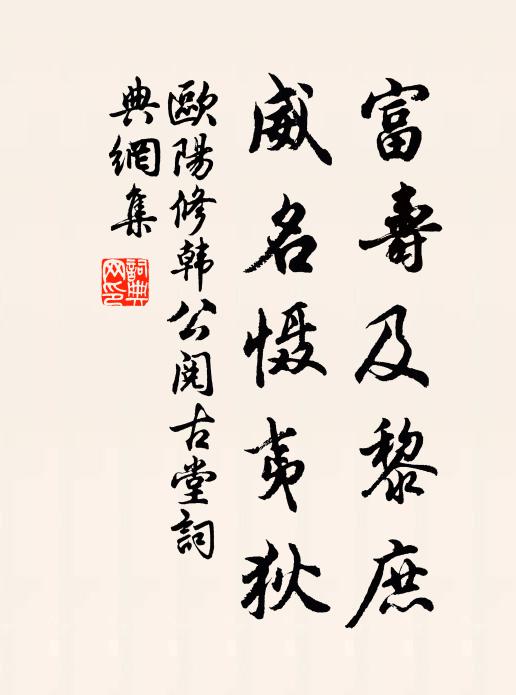 富壽及黎庶
威名慑夷狄
歐陽修韩公阅古堂詞
典網集
詞典網印